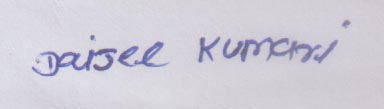 Daisee Kumari